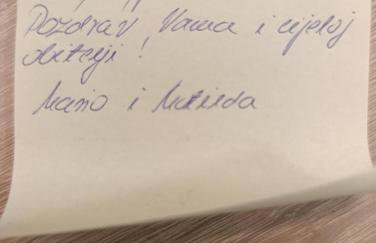 Pozdrav Vama i cijeloj
obitelji!
Mario i Matilda